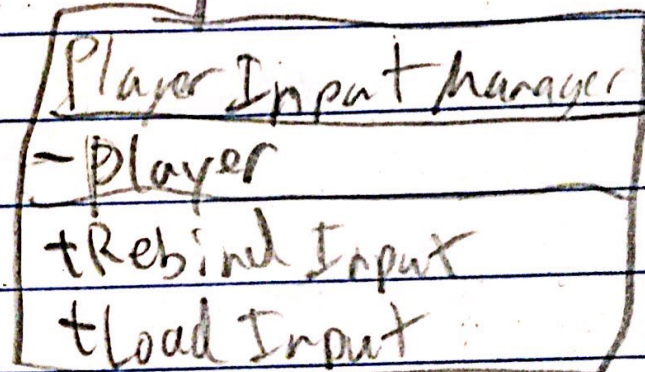 Player Input Manager
- player
+ Rebind Input
+ Load Input